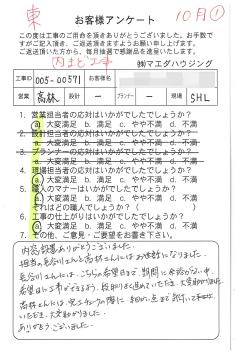 東
10月①
お客様アンケート
この度は工事のご用命を頂きありがとうございました。お手数で
すがご記入頂き、ご返送頂きますようお願い申し上げます。
ご返送頂いた方から、毎月抽選で感謝品を進呈致します。
内まど工事
㈱マエダハウジング
工事ID 005-00571 お客様名
営業 高林 設計 － プランナー － 現場 SHL
1. 営業担当者の応対はいかがでしたでしょうか？
a) 大変満足 b) 満足 c) やや不満 d) 不満
2. 設計担当者の応対はいかがでしたでしょうか？
a) 大変満足 b) 満足 c) やや不満 d) 不満
3. プランナーの応対はいかがでしたでしょうか？
a) 大変満足 b) 満足 c) やや不満 d) 不満
4. 現場担当者の応対はいかがでしたでしょうか？
a) 大変満足 b) 満足 c) やや不満 d) 不満
5. 職人のマナーはいかがでしたでしょうか？
a) 大変満足 b) 満足 c) やや不満 d) 不満
それはどの職人でしょうか？（ ）
6. 工事の仕上がりはいかがでしたでしょうか？
a) 大変満足 b) 満足 c) やや不満 d) 不満
7. その他、ご意見・ご要望をお書き下さい。
内窓設置ありがとうございました。
担当の長谷川さんと高林さんにはお世話になりました。
長谷川さんには、こちらの希望日まで、期間に余裕がない中、
希望日に工事ができるよう、段取りを進めていただき、大変助かりました。
高林さんには、完工チェックの際に、細かい点まで
いただき、大変助かりました。
ありがとうございました。